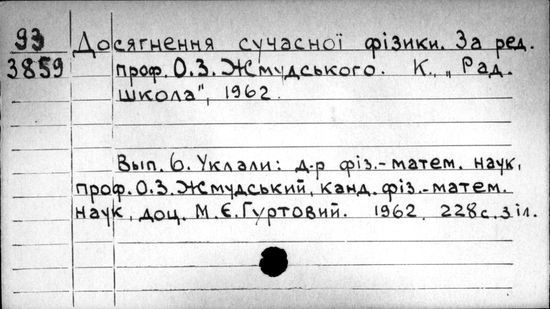 93 Досягнення сучасної фізики. За ред.
3859 проф. О.З. Жмудського. К., „Рад.
школа", 1962.
Вып. 6. Уклали: д-р фіз.-матем. наук,
проф. О.З. Жмудський, канд. фіз.-матем.
наук, доц. М.Є. Гуртовий. 1962. 228 с. з іл.